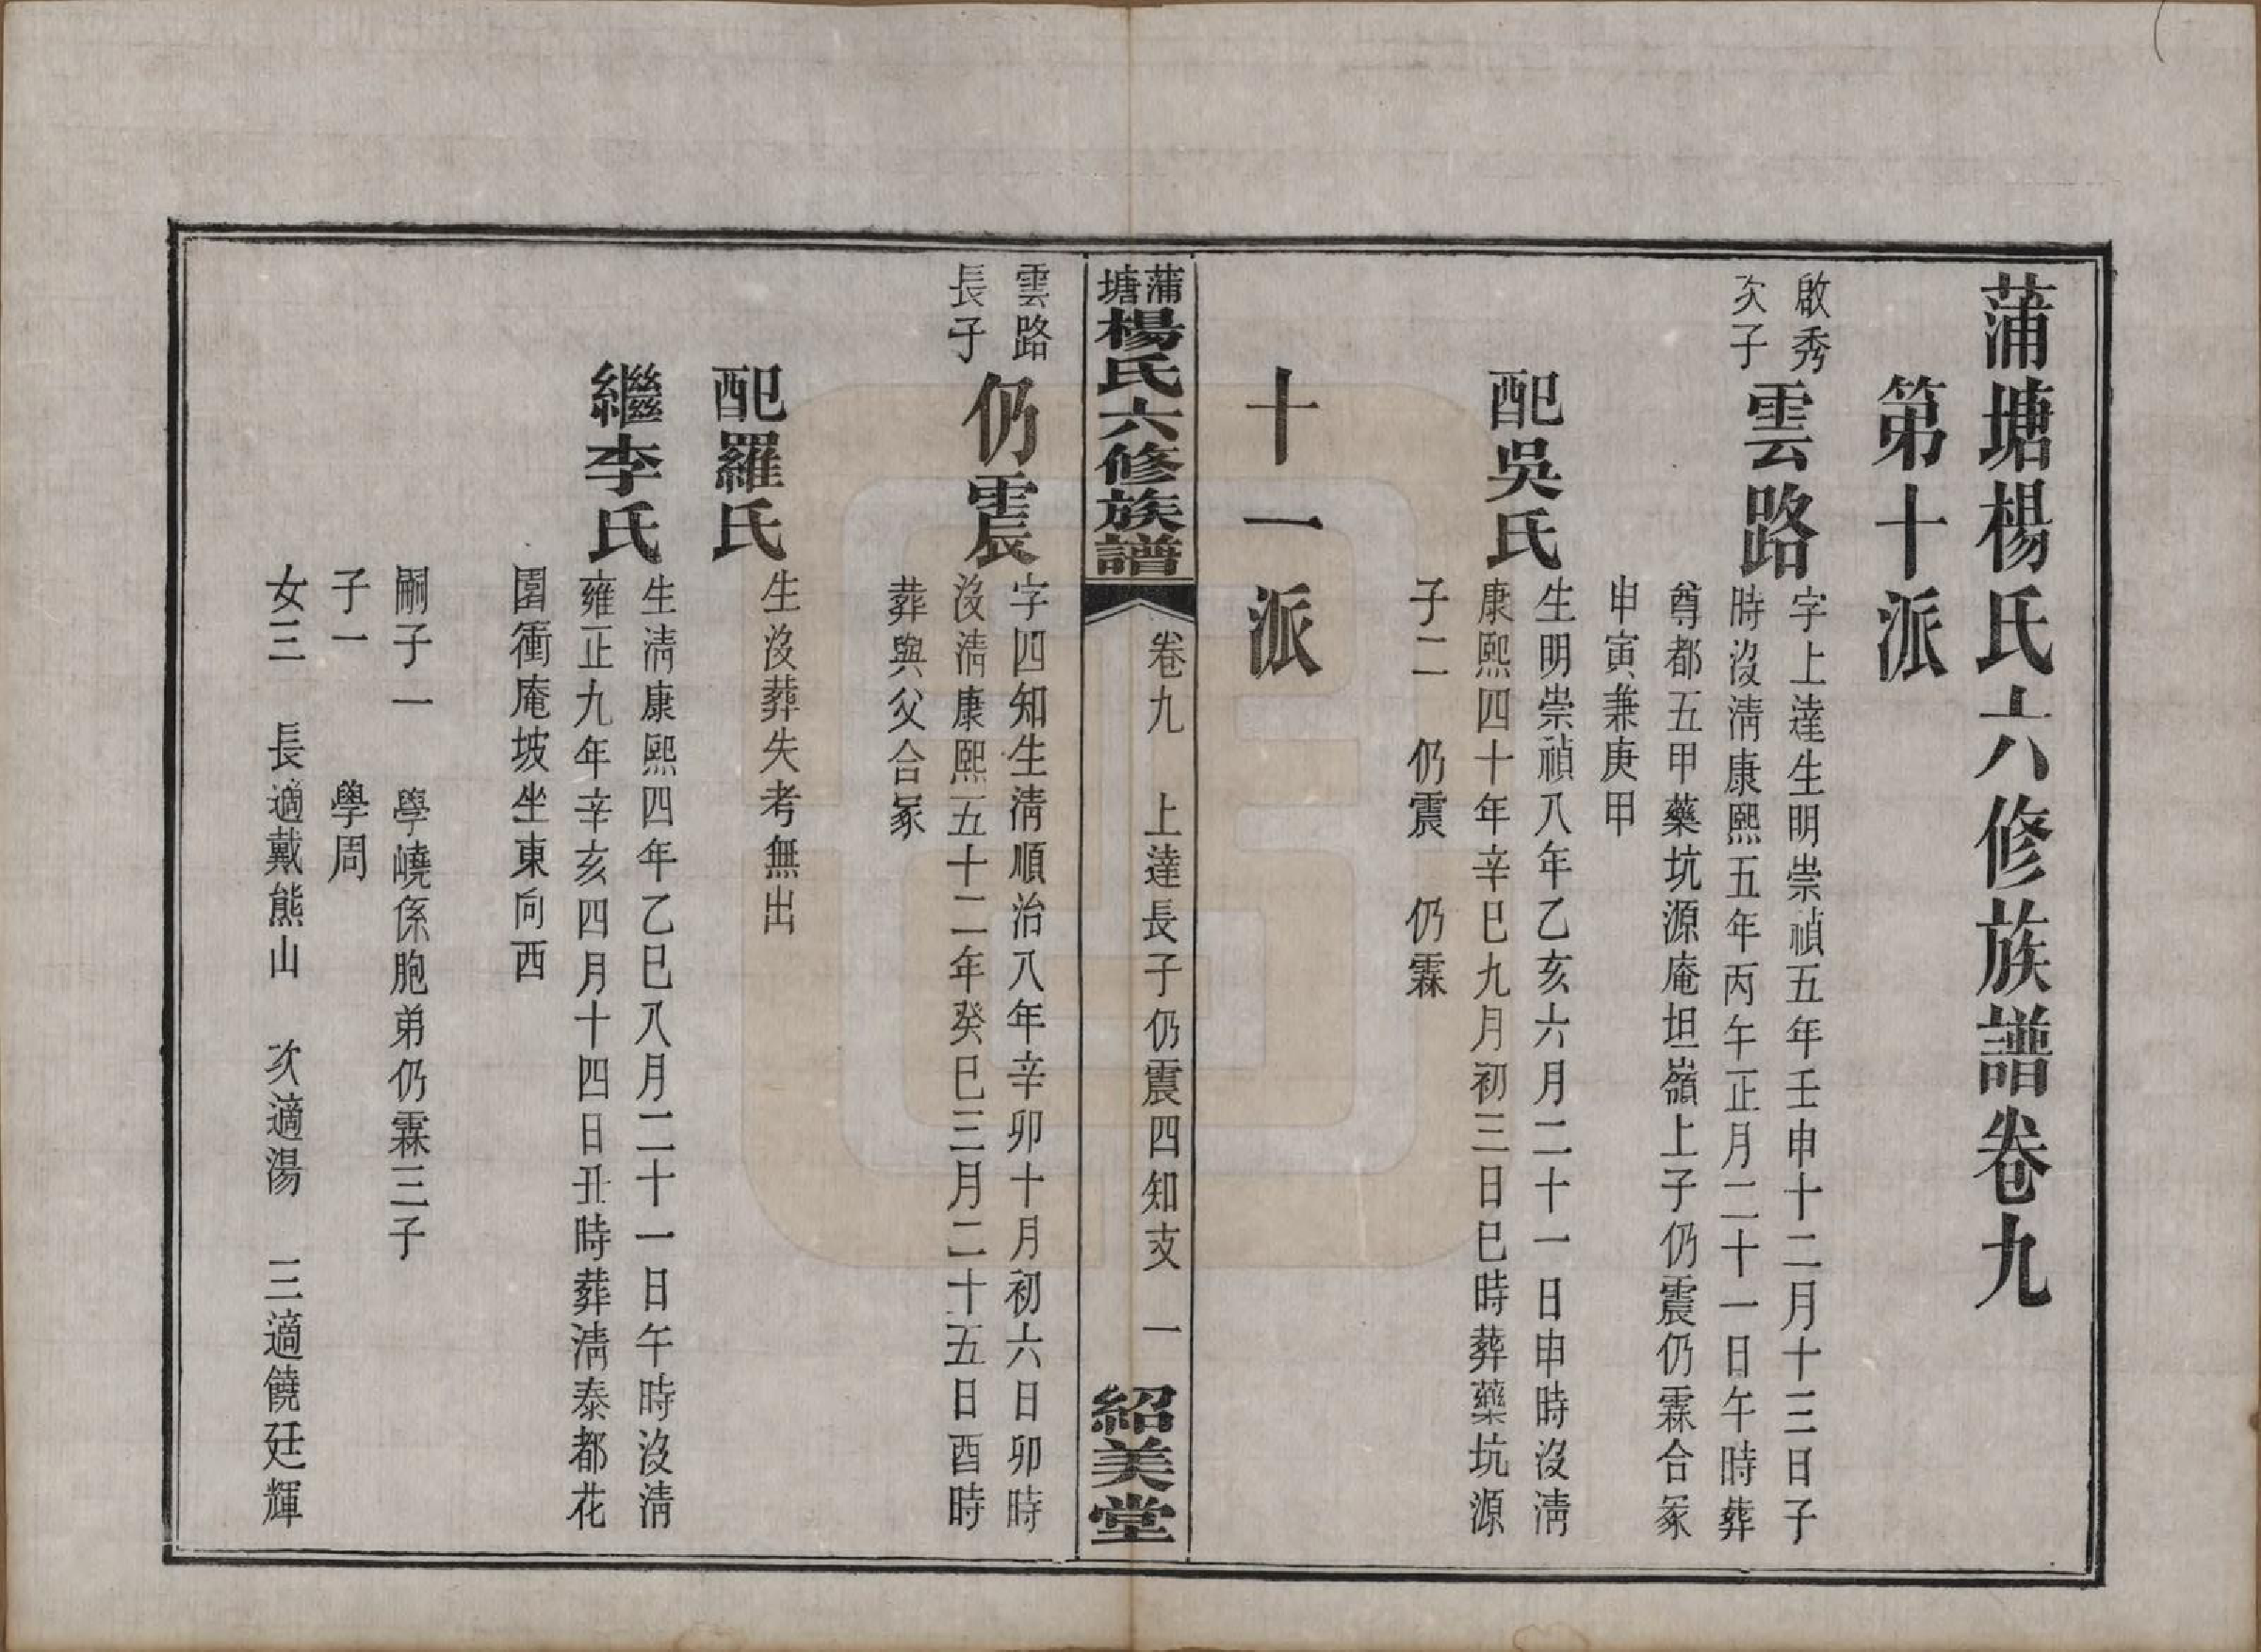 蒲塘楊氏六修族譜卷九
第十派
啟秀
次子
雲路
字上達生明崇禎五年壬申十二月十三日子
時沒淸康熙五年丙午正月二十一日午時葬
尊都五甲藥坑源庵坦嶺上子仍震仍霖合冢
申寅兼庚甲
配吳氏
生明崇禎八年乙亥六月二十一日申時沒淸
康熙四十年辛巳九月初三日巳時葬藥坑源
子二 仍震 仍霖
十一派
蒲塘楊氏六修族譜
卷九 上達長子仍震四知支 一
紹美堂
雲路
長子
仍震
字四知生淸順治八年辛卯十月初六日卯時
沒淸康熙五十二年癸巳三月二十五日酉時
葬與父合冢
配羅氏
生沒葬失考無出
繼李氏
生淸康熙四年乙巳八月二十一日午時沒淸
雍正九年辛亥四月十四日丑時葬淸泰都花
園衝庵坡坐東向西
嗣子一 學嶢係胞弟仍霖三子
子一 學周
女三 長適戴熊山 次適湯 三適饒廷輝